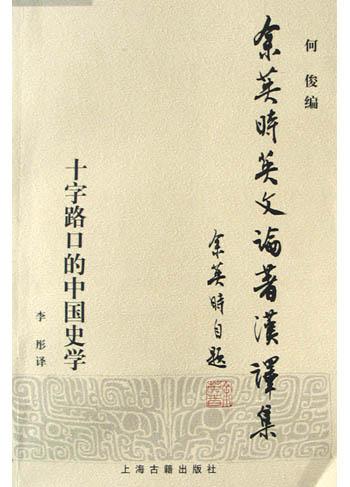 何俊编
余英時英文論著漢譯集
余英時自題
十字路口的中国史学
李彤译
上海古籍出版社